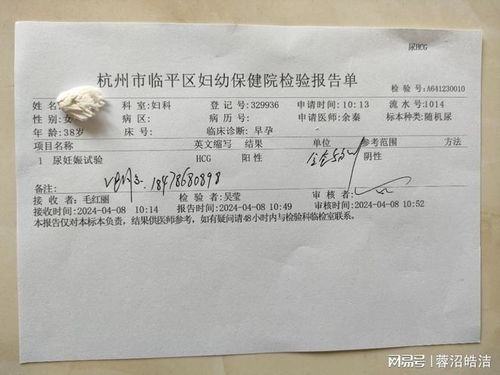 尿HCG
杭州市临平区妇幼保健院检验报告单
检验号:A641230010
姓名 科室:妇科 登记号:329936 申请时间:10:13 流水号:1014
性别:女 病区: 病历号: 申请医师:余秦 标本种类:随机尿
年龄:38岁 床号: 临床诊断:早孕
项目名称 英文缩写 结果 单位 参考范围 方法
1 尿妊娠试验 HCG 阳性 阴性
备注: 18478680898
接收者:毛红丽 检验者:吴莹 审核者:
接收时间:2024-04-08 10:14 报告时间:2024-04-08 10:49 审核时间:2024-04-08 10:52
本报告仅对本标本负责,结果供医师参考,如有疑问请48小时内与检验科临检室联系。
网易号 | 蓉沼皓洁